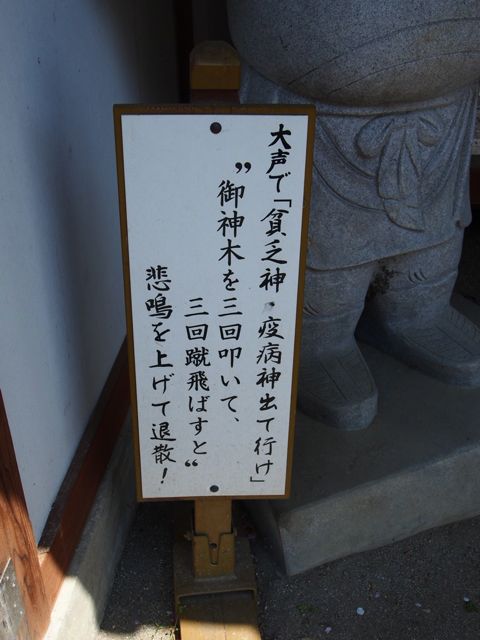 大声で「貧乏神・疫病神出て行け」
〝御神木を三回叩いて、
三回蹴飛ばすと〟
悲鳴を上げて退散！